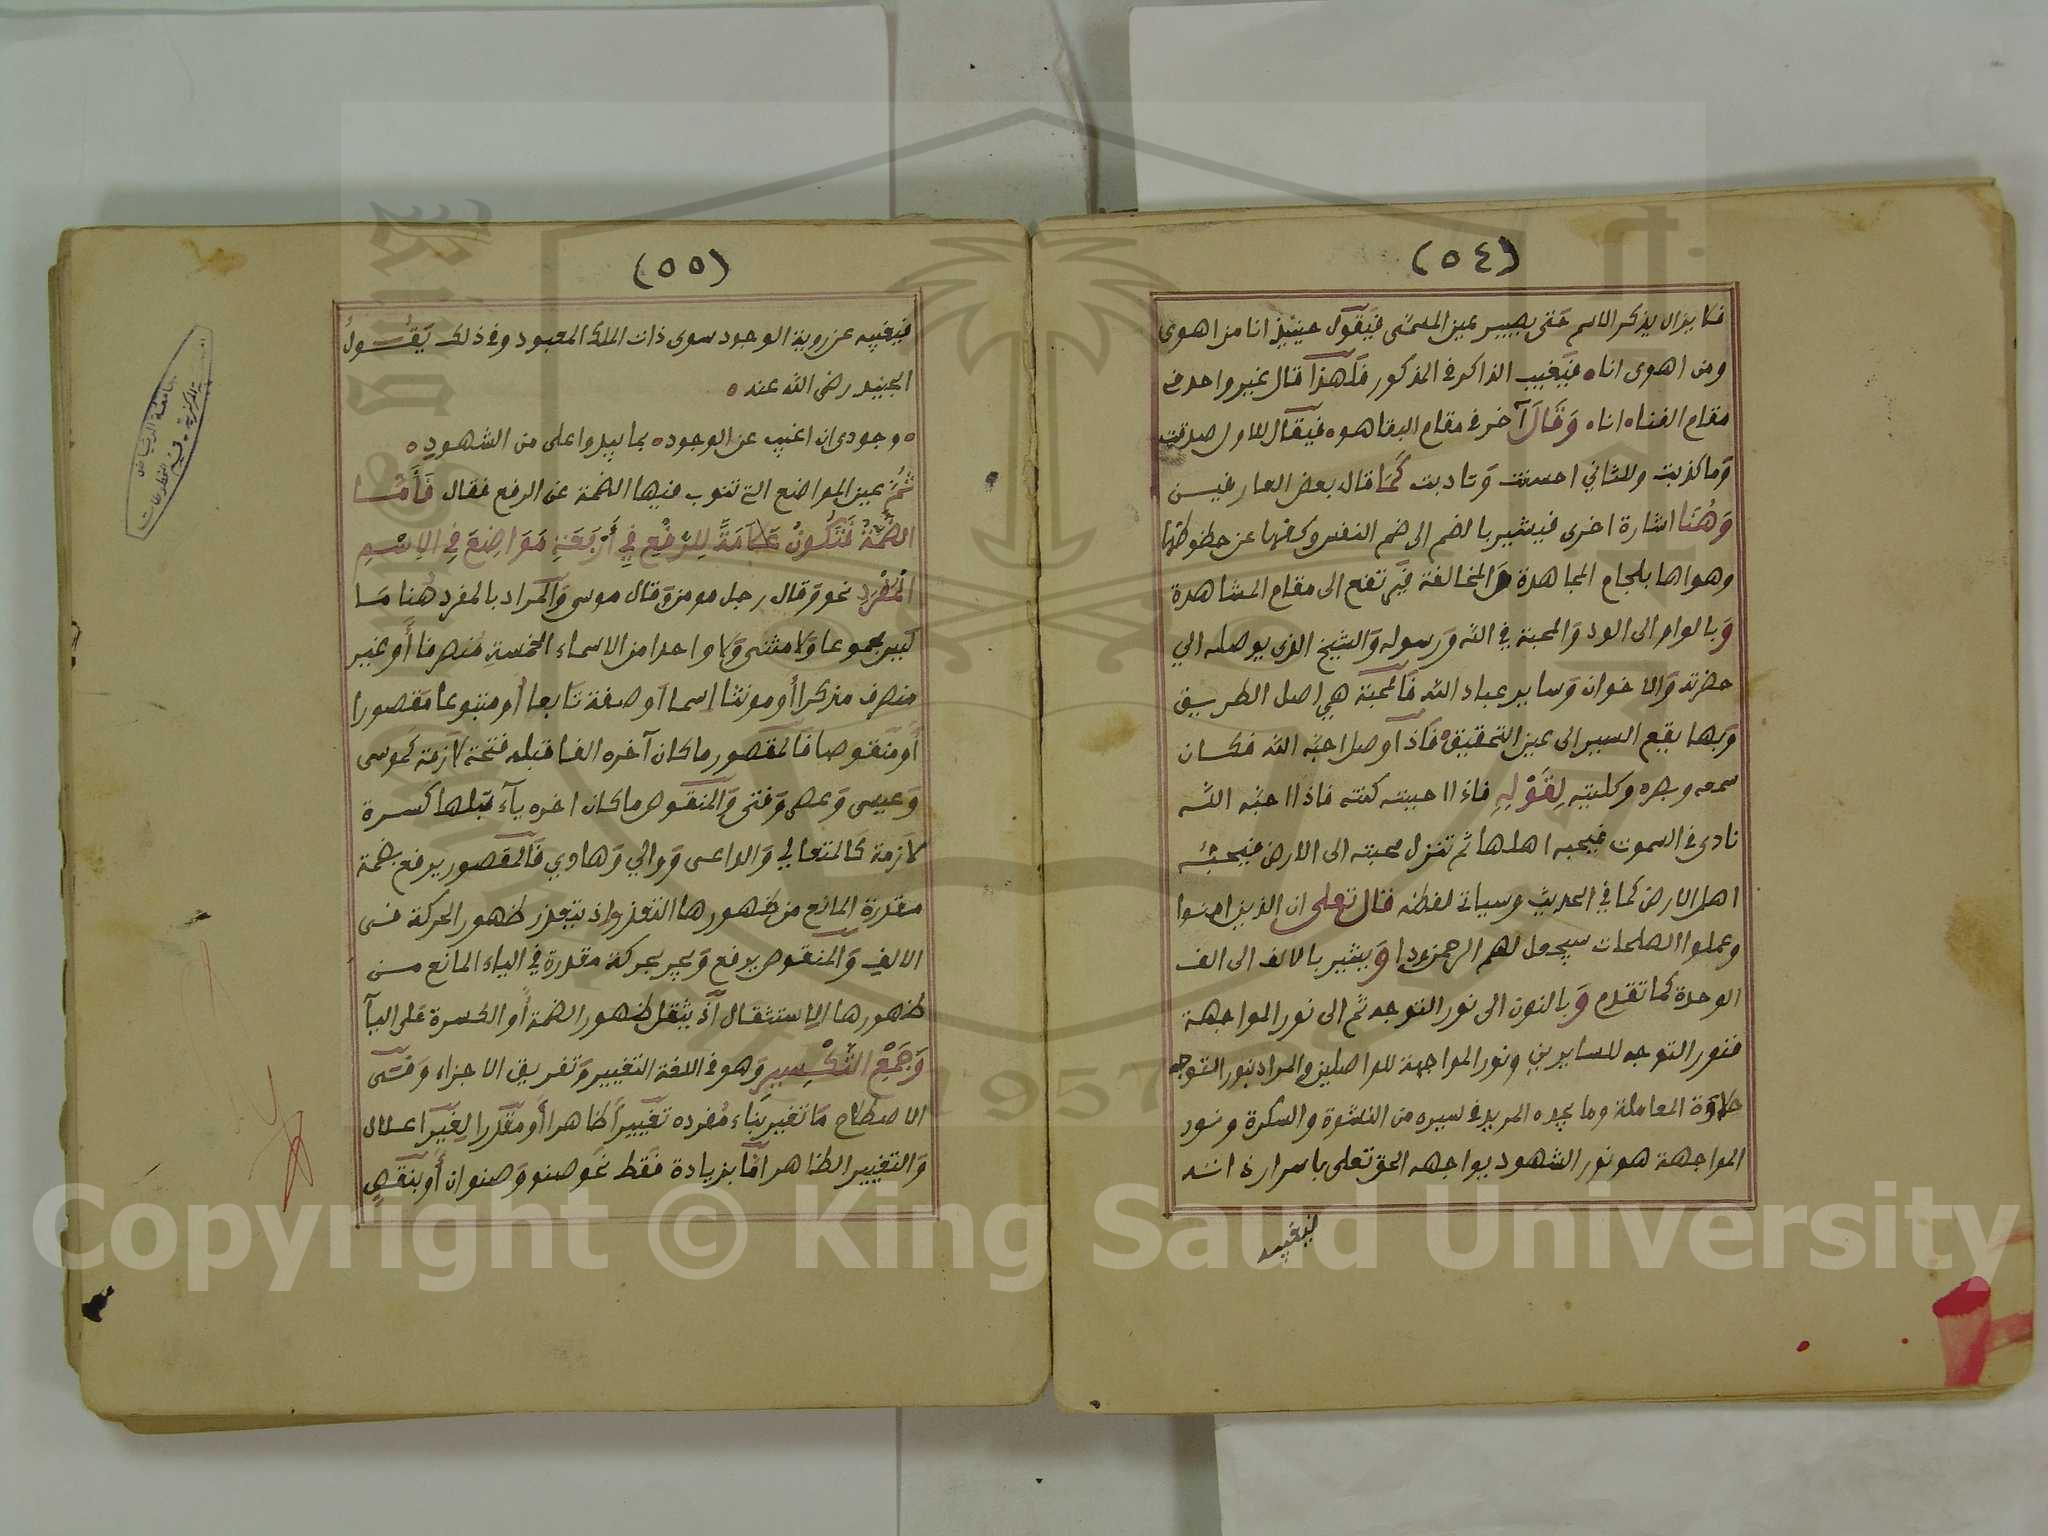 (٥٤)
فلا يزال يذكر الاسم حتى يصير عين المسمى فيقول حينئذ انا من اهوى
ومن اهوى انا ه فيغيب الذاكر في المذكور فلهذا قال غير واحد في
مقام الفناء انا ه وقال آخر في مقام البقا هو ه فيقال للاول صدقت
وما كذبت وللثاني احسنت وتادبت كما قال بعض العارفين
وهنا اشارة اخرى فيشير بالضم الى ضم النفس وكفها عن حظوظها
وهواها بلجام المجاهدة والمخالفة فترتفع الى مقام المشاهدة
وبالواو الى الود والمحبة في الله ورسوله والشيخ الذي يوصله الي
حضرته والاخوان وساير عباد الله فالمحبة هي اصل الطريق
وبها يقع السير الى عين التحقيق ه فاذا وصل احبه الله فكان
سمعه وبصره وكليته لقوله فاذا احببته كنته فاذا احبه الله
نادى في السموت فيحبه اهلها ثم تنزل محبته الى الارض فيحبه
اهل الارض كما في الحديث وسياتي لفظه قال تعلى ان الذين امنوا
وعملوا الصلحات سيجعل لهم الرحمن ودا ويشير بالالف الى الف
الوحدة كما تقدم وبالنون الى نور التوجه ثم الى نور المواجهة
فنور التوجه للسايرين ونور المواجهة للواصلين والمراد بنور التوجه
حلاوة المعاملة وما يجده المريد في سيره من النشوة والسكرة ونور
المواجهة هو نور الشهود يواجهه الحق تعلى باسرار ذاته
فيغيبه
(٥٥)
فيغيبه عن روية الوجود سوى ذات الملك المعبود وفي ذلك يقول
الجنيد رضى الله عنه ه
ه وجودي ان اغيب عن الوجود ه بما يبدوا على من الشهود ه
ثم عين المواضع التي تنوب فيها الضمة عن الرفع فقال فأما
الضمة فتكون علامة للرفع في أربعة مواضع في الاسم
المفرد نحو وقال رجل مومن وقال موسى والمراد بالمفرد هنا ما
ليس مجموعا ولا مثنى ولا واحدا من الاسماء الخمسة منصرفا أو غير
منصرف مذكرا أو مونثا اسما أو صفة تابعا أو متبوعا مقصورا
أو منقوصا فالمقصور ما كان آخره الفا قبله فتحة لازمة كموسى
وعيسى وعصى وفتى والمنقوص ما كان اخره يآء قبلها كسرة
لازمة كالمتعالي والداعى ووالي وهادي فالمقصور يرفع بضمة
مقدرة المانع من ظهورها التعذر اذ يتعذر ظهور الحركة في
الالف والمنقوص يرفع ويجر بحركة مقدرة في الياء المانع من
ظهورها الاستثقال اذ يثقل ظهور الضمة أو الكسرة على اليآ
وجمع التكسير وهو في اللغة التغيير وتفريق الاجزاء وفى
الاصطلاح ما تغير بناء مفرده تغييرا ظاهرا أو مقدرا لغير اعلال
والتغيير الظاهر امآ بزيادة فقط نحو صنو وصنوان أو بنقص
جامعة الرياض
قسم المخطوطات
Copyright © King Saud University
King Saud University
1957